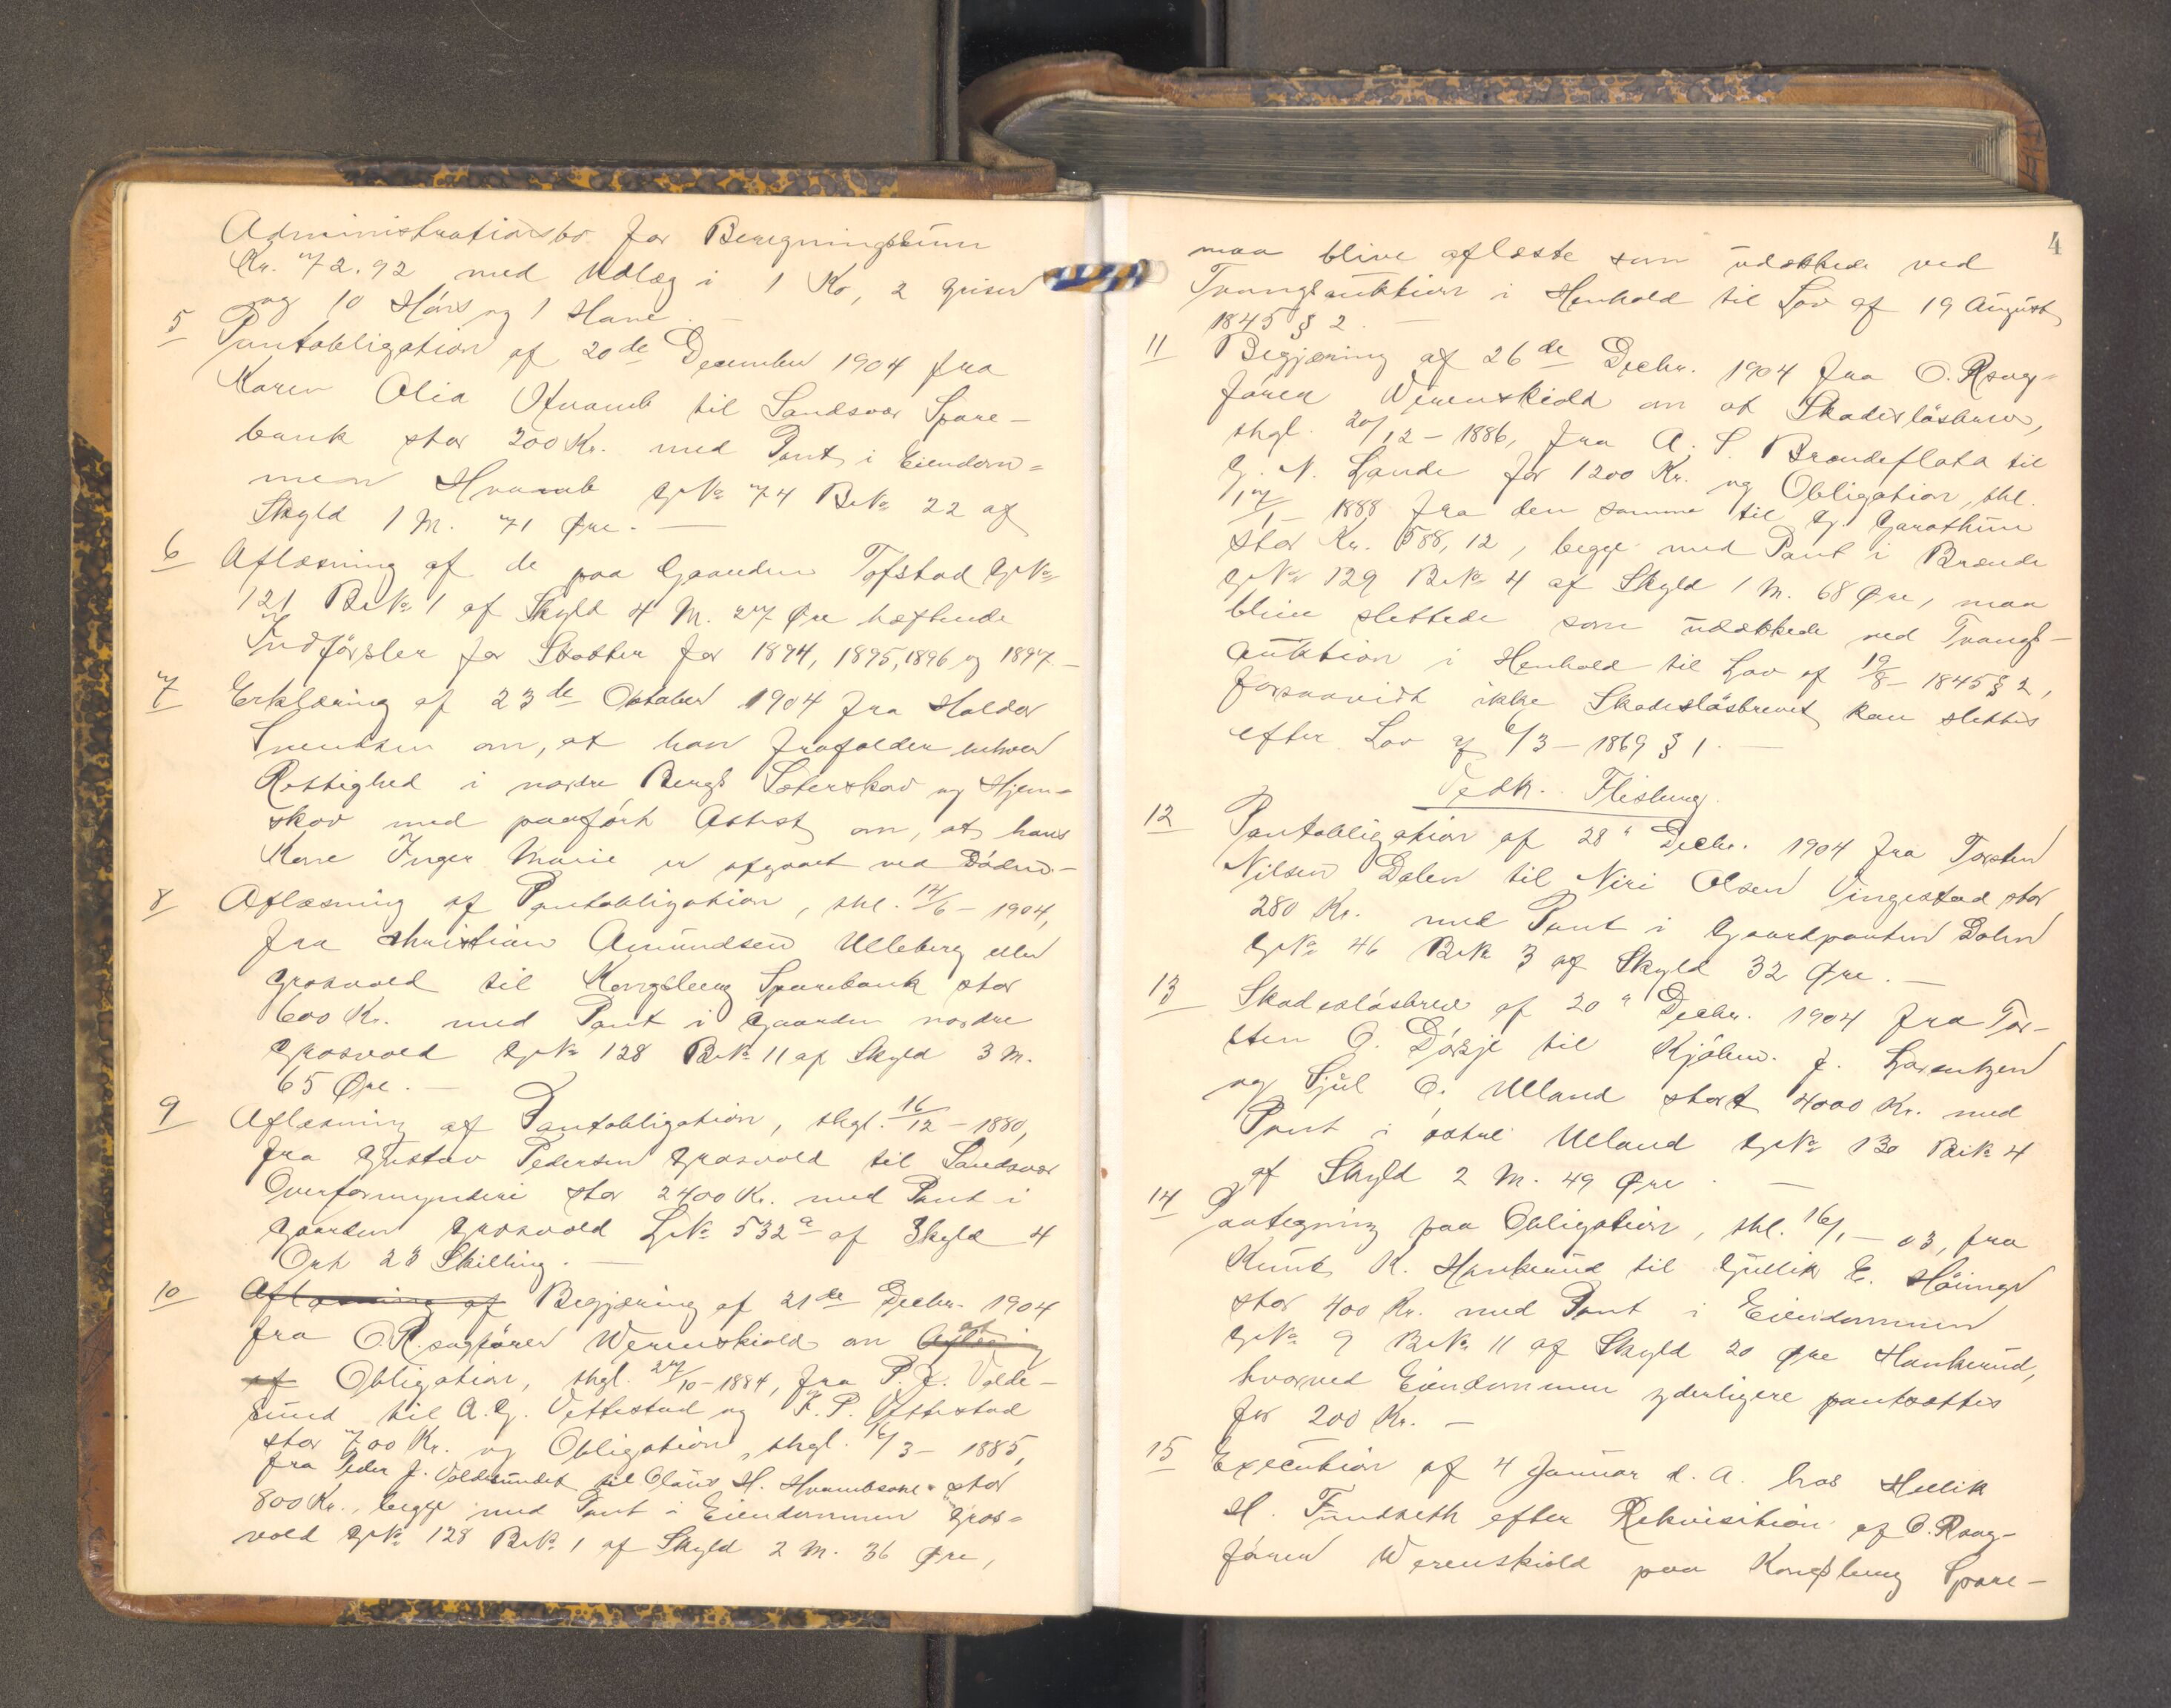 Administrationsbo for Beregningssum
Kr. 72.92 med Udlæg i 1 Ko, 2 Griser
og 10 Höns og 1 Hane. –
5 Pantobligation af 20de December 1904 fra
Karen Olia Hvamb til Sandsvær Spare-
bank stor 200 Kr. med Pant i Eiendom=
men Hvamb GNo 74 BNo 22 af
Skyld 1 M. 71 Øre. –
6 Aflæsning af de paa Gaarden Tofstad GNo
121 BNo 1 af Skyld 4 M. 27 Øre heftende
Indförsler for Skatter for 1894, 1895, 1896 og 1897 –
7 Erklæring af 23de Oktober 1904 fra Haldor
Svendsen om, at han frafalder enhver
Rettighed i nordre Bergs Sæterskov og Hjem=
skov med paafört Attest om, at hans
Kone Inger Marie er afgaaet ved Döden. –
8 Aflæsning af Pantobligation, thl. 14/6 – 1904,
fra Christian Amundsen Ulleberg eller
Grosvold til Kongsberg Sparebank stor
600 Kr. med Pant i Gaarden nordre
Grosvold GNo 128 BNo 11 af Skyld 3 M.
65 Øre. –
9 Aflæsning af Pantobligation, thgl. 16/12 – 1880,
fra Gustav Pedersen Grosvold til Sandsvær
Overformynderi stor 2400 Kr. med Pant i
Gaarden Grosvold LNo 532a af Skyld 4
Ort 23 Skilling. –
10 Aflæsning af Begjæring af 21de Decbr. 1904
fra O.R.sagförer Werenskiold om Aflæsning at
af Obligation, thgl. 27/10 – 1884, fra P. J. Volde-
sund til A. G. Vettestad og K. P. Vettestad
stor 700 Kr. og Obligation, thgl. 16/3 – 1885,
fra Peder J. Voldesundet til Olaus H. Hvambsane stor
800 Kr., begge med Pant i Eiendommen Gros=
vold GNo 128 BNo 1 af Skyld 2 M. 36 Øre,
4
maa blive aflæste som udækkede ved
Tvangsauktion i Henhold til Lov af 19 August
1845 § 2. –
11 Begjæring af 26de Decbr. 1904 fra O. Rsag=
förer Werenskiold om at Skadeslösbrev,
thgl. 20/12 – 1886, fra A. S. Brændeflata til
G. N. Lande for 1200 Kr. og Obligation, thl.
17/1 – 1888 fra den samme til G. Garathun
stor Kr. 588,12, begge med Pant i Brænde
GNo 129 BNo 4 af Skyld 1 M. 68 Øre, maa
blive slettede som udækkede ved Tvangs-
auktion i Henhold til Lov af 19/8 – 1845 § 2,
forsaavidt ikke Skadeslösbrevet kan slettes
efter Lov af 6/3 – 1869 § 1. –
Vedk. Flesberg.
12 Pantobligation af 28" Decbr. 1904 fra Torsten
Nilsen Dalen til Niri Olsen Vingestad stor
280 Kr. med Pant i Gaardparten Dalen
GNo 46 BNo 3 af Skyld 32 Øre. –
13 Skadeslösbrev af 20" Decbr. 1904 fra Tor-
sten O. Dörje til Kjöbm. J. Lorentzen
og Sjul O. Ulland stort 4000 Kr. med
Pant i østre Ulland GNo 130 BNo 4
af Skyld 2 M. 49 Øre. –
14 Paategning paa Obligation, thl. 16/1 – 03, fra
Knut K. Haukerud til Gullik E. Höimyr
stor 400 Kr. med Pant i Eiendommen
GNo 9 BNo 11 af Skyld 20 Øre Haukerud,
hvorved Eiendommen yderligere pantsættes
for 200 Kr. –
15 Execution af 4 Januar d. A. hos Hellik
H. Fundseth efter Rekvisition af O. Rsag-
förer Werenskiold paa Kongsberg Spare-